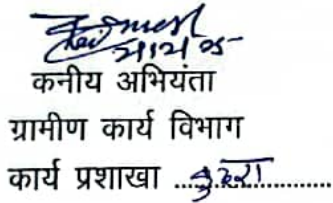 कनीय अभियंता
ग्रामीण कार्य विभाग
कार्य प्रशाखा ..................